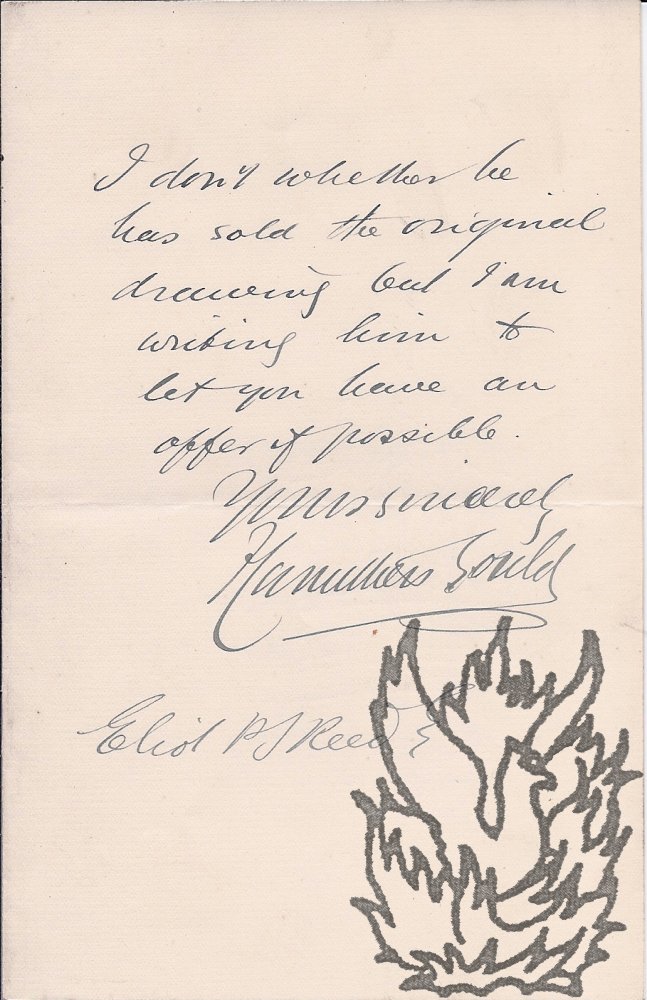 I don't whether he
has sold the original
drawing but I am
writing him to
let you have an
offer if possible.
Yours sincerely
F Carruthers Gould
Eliot P S Reed E